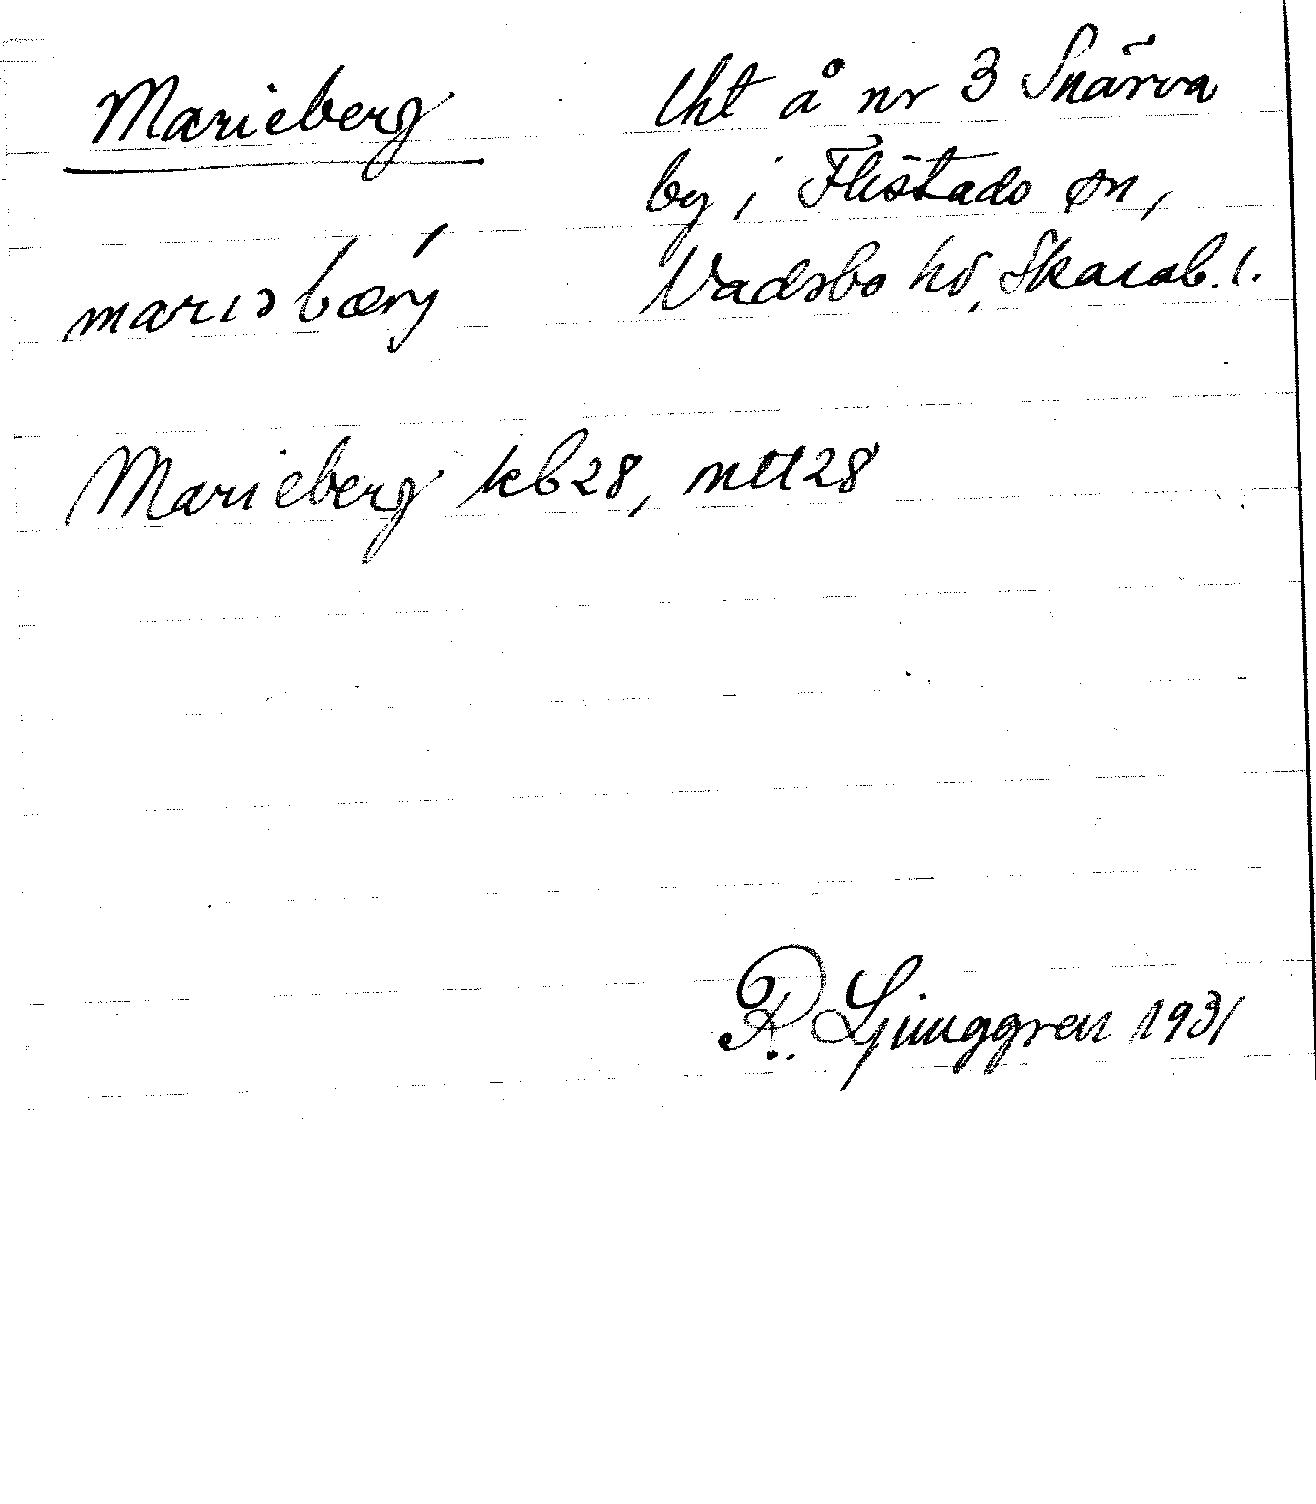 Marieberg
lht å nr 3 Snärva
by i Flistads sn,
Vadsbo hd, Skarab. l.
mariəbærj
Marieberg kb28, mtl28
R. Ljunggren 1931